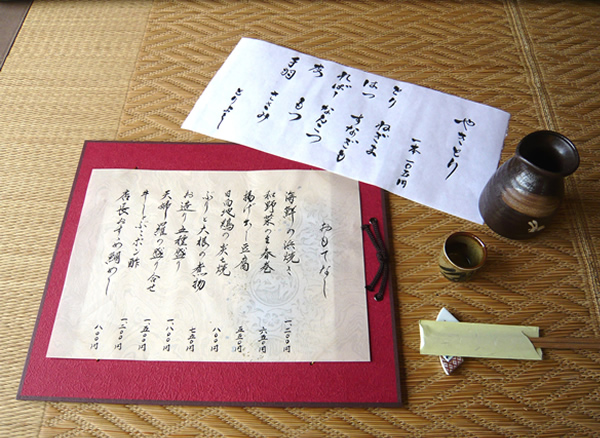 やきとり
一本 一〇〇円
とり ねぎま
はつ すなぎも
ればー なんこつ
皮 もつ
手羽 ささみ
おもてなし
海鮮の浜焼き 一二〇〇円
和野菜の生春巻 六五〇円
揚げ出し豆腐 五五〇円
日向地鶏の炭焼 八〇〇円
ぶりと大根の煮物 七五〇円
お造り五種盛り 一八〇〇円
天婦羅の盛り合せ 一五〇〇円
牛しゃぶポン酢
店長おすすめ鯛めし 八〇〇円